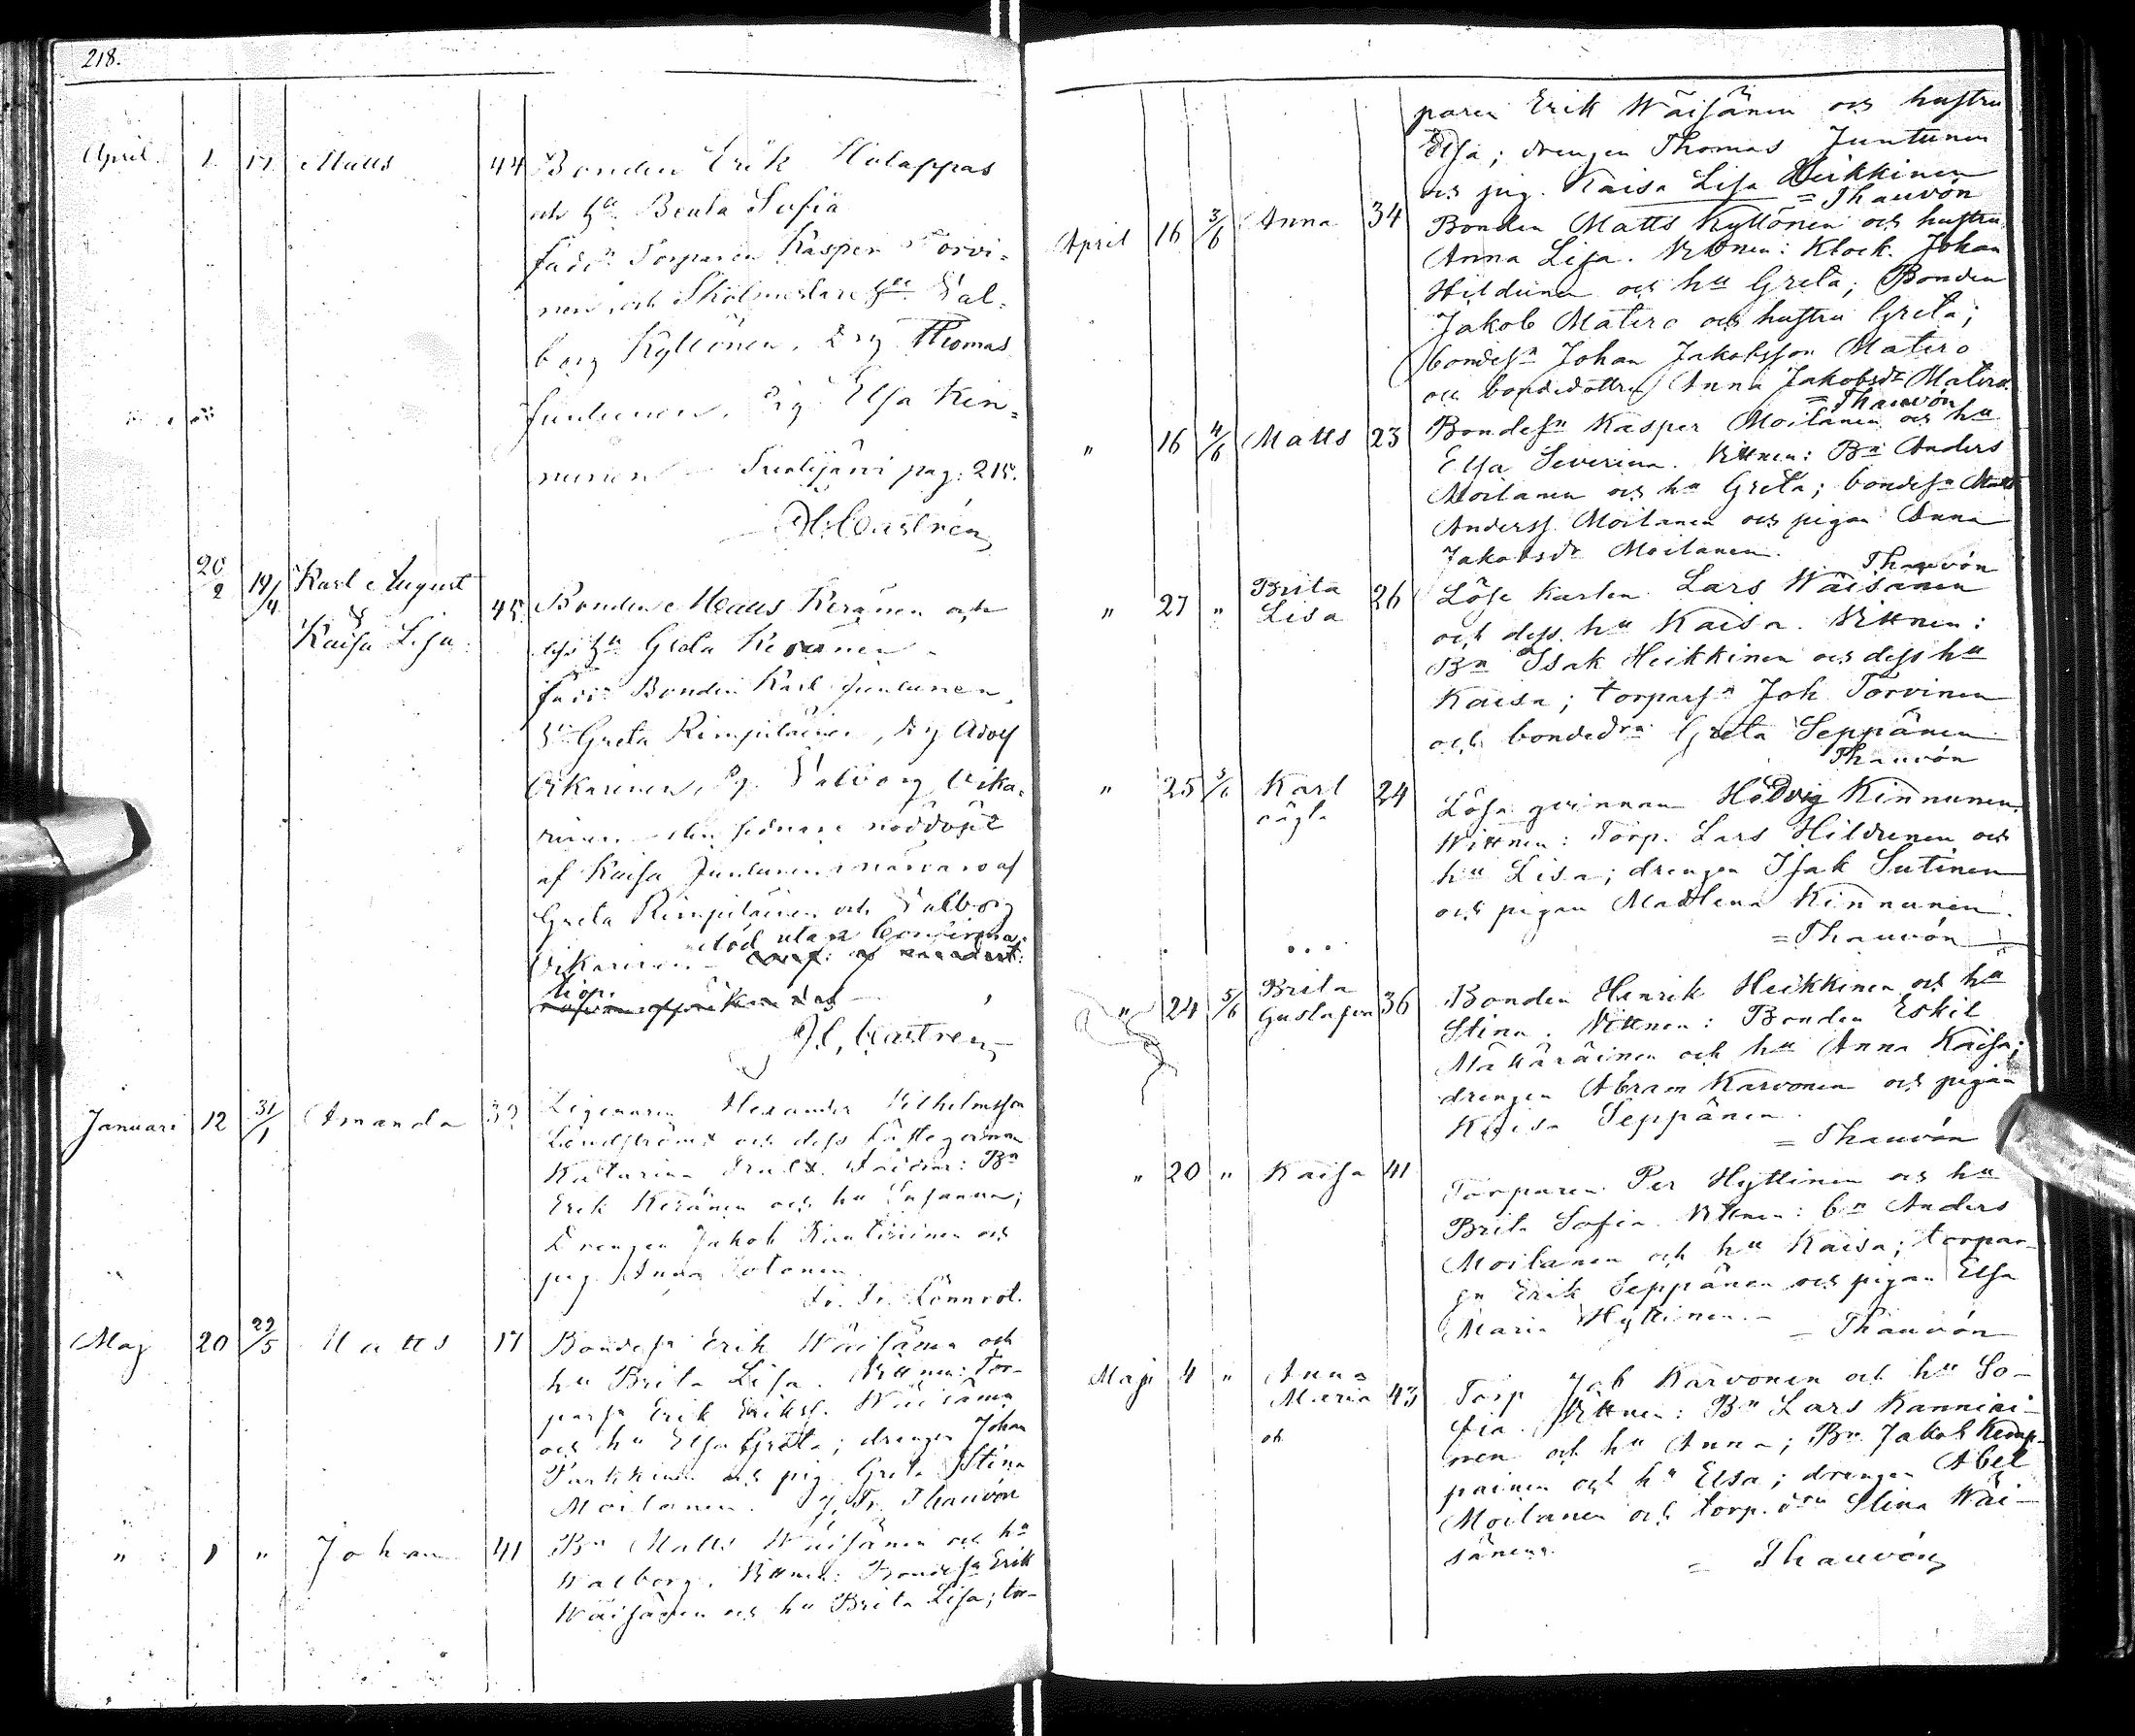 218.
April 1. 17 Matts 44 Bonden Erik Holappas
och hu Brita Sofia
fadd: Torparen Kasper Torvi=
nen och Skolmestare hu Val=
borg Kyllönen, Drg Thomas
Juntunen, Pig. Elsa Kin=
nunen pag: 215.
Castrén
20/2 19/4 Karl August
&
Kaisa Lisa 45 Bonden Matts Keränen och
dess hu Greta Keränen
fadd: Bonden Karl Juntunen,
hu Greta Rimpiläinen, drg Adolf
Oikarinen, Pg. Valborg Oika=
rinen den sednare nöddöpt
af Kaisa Juntunen närvaro af
Greta Rimpiläinen och Valborg
Oikarinen död utan Confirma=
tion.
Castrén
Januari 12 31/1 Amanda 32 Alexander Vilhelmsson
Lindström och dess
Katarina Faddrar: Bn
Erik Keränen och hu Susanna;
Drengen Jakob och
pig. Anna
Fr. Fr. Lönnrot.
Maj 20 29/5 Matts 17 Bondesn Erik Wäisänen och
hu Brita Lisa. Vittnen: tor-
parsn Erik Erikss. Wäisänen
och hu Elsa Greta; drengen Johan
Parkkinen och pig Greta Stina
Moilanen. J. Fr. Thauvón
" 1 " Johan 41 Bn Matts Wäisänen och hu
Walborg. Vittnen: Bondesn Erik
Wäisänen och hu Brita Lisa; tor-
paren Erik Wäisänen och hustru
Elsa; drengen Thomas Juntunen
och pig. Kaisa Lisa Heikkinen
= Thauvón
April 16 3/6 Anna 34 Bonden Matts Kyllönen och hustru
Anna Lisa. Vittnen: Klock. Johan
Hildunen och hu Greta; Bonden
Jakob Matero och hustru Greta;
bondesn Johan Jakobsson Matero
och bondedottren Anna Jakobsdr Matero.
= Thauvón
" 16 4/6 Matts 23 Bondesn Kasper Moilanen och hu
Elsa Severina. Vittnen: Bn Anders
Moilanen och hu Greta; bondesn Matts
Anderss. Moilanen och pigan Anna
Jakobsdr Moilanen.
Thauvón
" 27 " Brita
Lisa 26 Löse karlen Lars Wäisänen
och dess hu Kaisa. Vittnen:
Bn Isak Heikkinen och dess hu
Kaisa; torparsn Joh Torvinen
och bondedrn Greta Seppänen
Thauvón
" 25 5/6 Karl
oägta 24 Lösa qvinnan Hedvig Kinnunen.
Wittnen: Torp. Lars Hildunen och
hu Lisa; drengen Isak Sutinen
och pigan Madlena Kinnunen.
= Thauvón
" 24 5/6 Brita
Gustafva 36 Bonden Henrik Heikkinen och hu
Stina. Vittnen: Bonden Eskil
Määräinen och hu Anna Kaisa;
drengen Abram Karvonen och pigan
Kaisa Seppänen.
= Thauvón
" 20 " Kaisa 41 Torparen Per Hyttinen och hu
Brita Sofia. Vittnen: bn Anders
Moilanen och hu Kaisa; torpar-
sn Erik Seppänen och pigan Elsa
Maria Hyttinen.
= Thauvón
Maji 4 " Anna
Maria 43 Torp Jak Karvonen och hu So-
fia. Vittnen: Bn Lars Kanniai-
nen och hu Anna; Bn Jakob Kemp-
painen och hu Elsa; drengen Abel
Moilanen och torp. drn Stina Wäi-
sänen.
= Thauvón